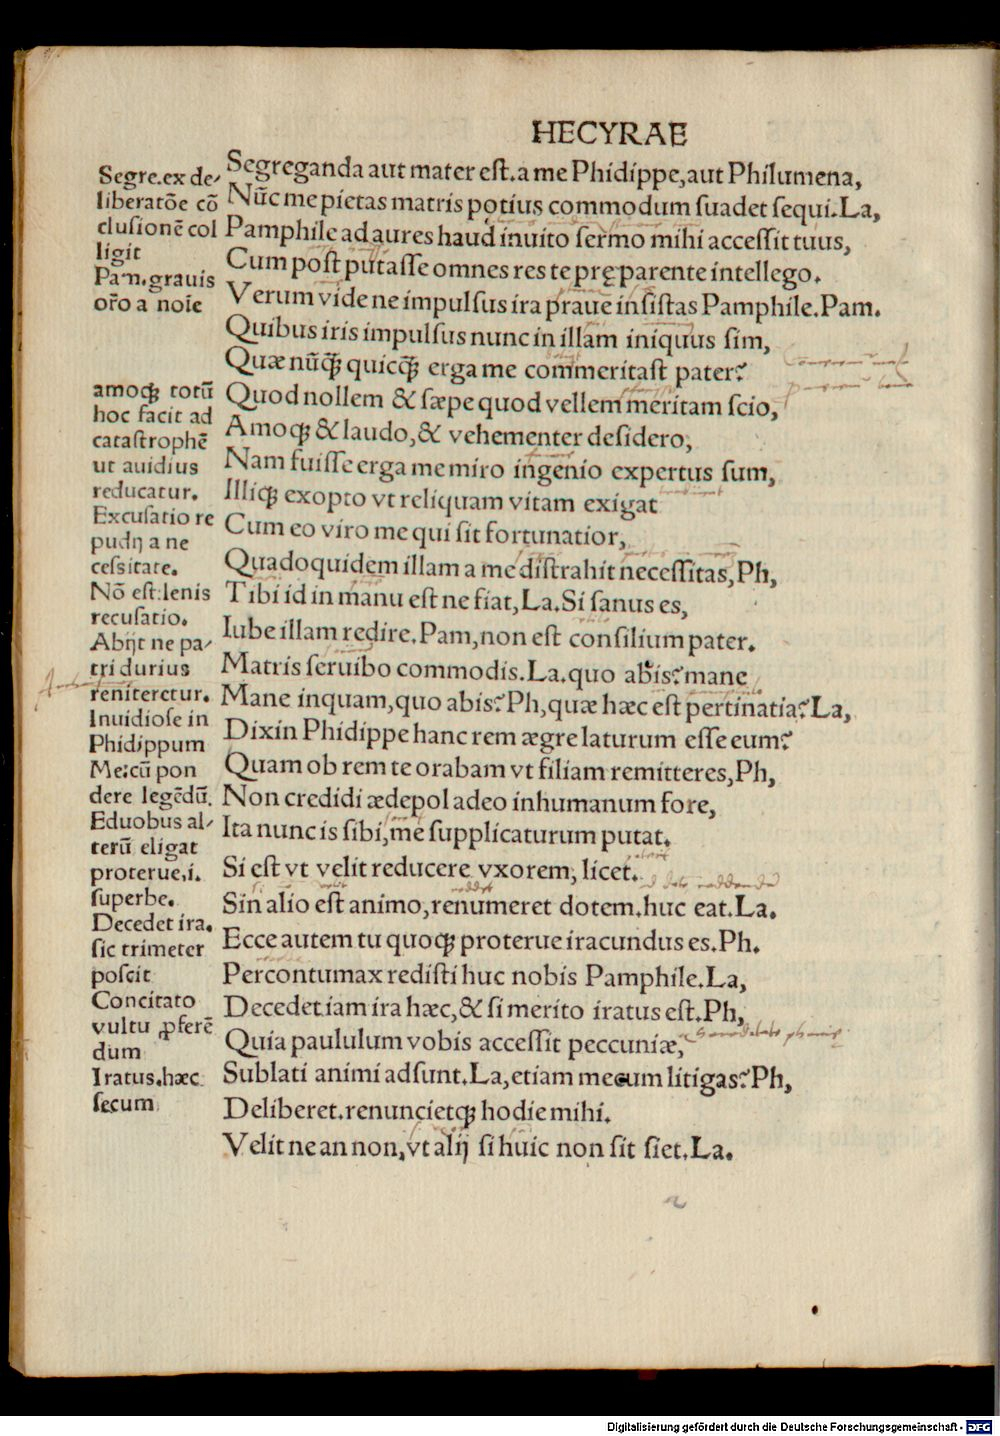 HECYRAE
Segreganda aut mater est.a me Phidippe,aut Philumena,
Nūc me pietas matris potius commodum suadet sequi.La,
Pamphile ad aures haud inuito sermo mihi accessit tuus,
Cum post putasse omnes res te prę parente intellego.
Verum vide ne impulsus ira praue insistas Pamphile.Pam.
Quibus iris impulsus nunc in illam iniquus sim,
Quæ nūq̃ quicq̃ erga me commeritast pater?
Quod nollem & sæpe quod vellem meritam scio,
Amoqꝫ & laudo,& vehementer desidero,
Nam fuisse erga me miro ingenio expertus sum,
Illiqꝫ exopto vt reliquam vitam exigat
Cum eo viro me qui sit fortunatior,
Quadoquidem illam a me distrahit necessitas,Ph,
Tibi id in manu est ne fiat,La.Si sanus es,
Iube illam redire.Pam,non est consilium pater.
Matris seruibo commodis.La.quo abis?mane
Mane inquam,quo abis?Ph,quæ hæc est pertinatia?La,
Dixin Phidippe hanc rem ægre laturum esse eum?
Quam ob rem te orabam vt filiam remitteres,Ph,
Non credidi ædepol adeo inhumanum fore,
Ita nunc is sibi,me supplicaturum putat.
Si est vt velit reducere vxorem, licet.
Sin alio est animo,renumeret dotem.huc eat.La.
Ecce autem tu quoqꝫ proterue iracundus es.Ph.
Percontumax redisti huc nobis Pamphile.La,
Decedet iam ira hæc,& si merito iratus est.Ph,
Quia paululum vobis accessit peccuniæ,
Sublati animi adsunt.La,etiam mecum litigas?Ph,
Deliberet.renuncietqꝫ hodie mihi.
Velit ne an non,vt alij si huic non sit siet.La.
Segre.ex de/
liberatōe cō
clusionē col
ligit
Pam.grauis
or̄o a noīe
amoqꝫ totū
hoc facit ad
catastrophē
ut auidius
reducatur.
Excusatio re
pudij a ne
cessitate.
Nō est:lenis
recusatio.
Abijt ne pa/
tri durius
reniteretur.
Inuidiose in
Phidippum
Me:cū pon
dere legēdū.
Eduobus al/
terū eligat
proterue,i.
superbe.
Decedet ira.
sic trimeter
poscit
Concitato
vultu ꝓferē
dum
Iratus.hæc
secum
Digitalisierung gefördert durch die Deutsche Forschungsgemeinschaft - DFG